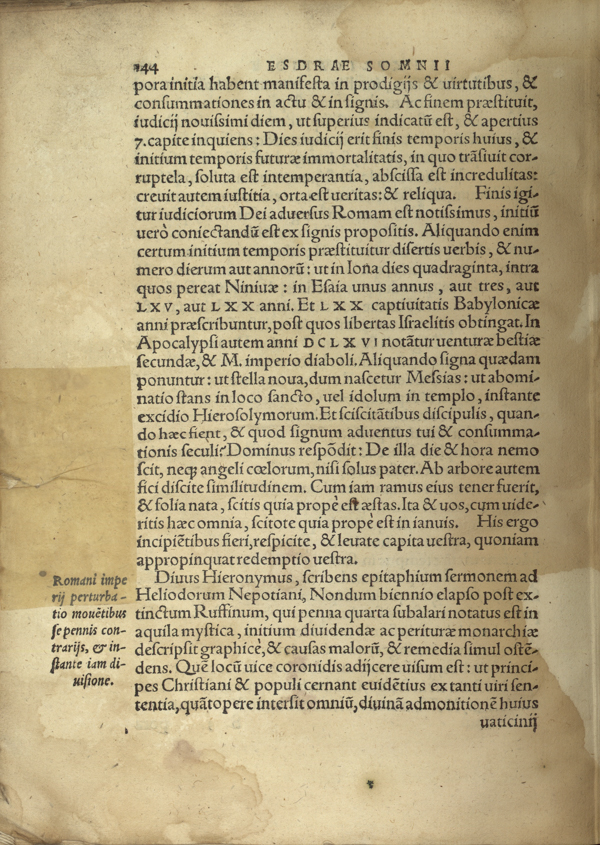 244 ESDRAE SOMNII
pora initia habent manifesta in prodigijs & uirtutibus, &
consummationes in actu & in signis. Ac finem præstituit,
iudicij nouissimi diem, ut superius indicatũ est, & apertius
7. capite inquiens: Dies iudicij erit finis temporis huius, &
initium temporis futuræ immortalitatis, in quo trãsiuit cor-
ruptela, soluta est intemperantia, abscissa est incredulitas:
creuit autem iustitia, orta est ueritas: & reliqua. Finis igi-
tur iudiciorum Dei aduersus Romam est notissimus, initiũ
uerò coniectandũ est ex signis propositis. Aliquando enim
certum initium temporis præstituitur disertis uerbis, & nu-
mero dierum aut annorũ: ut in Iona dies quadraginta, intra
quos pereat Niniuæ: in Esaia unus annus, aut tres, aut
LXV, aut LXX anni. Et LXX captiuitatis Babylonicæ
anni præscribuntur, post quos libertas Israelitis obtingat. In
Apocalypsi autem anni DCLXVI notãtur uenturæ bestiæ
secundæ, & M. imperio diaboli. Aliquando signa quædam
ponuntur: ut stella noua, dum nascetur Messias: ut abomi-
natio stans in loco sancto, uel idolum in templo, instante
excidio Hierosolymorum. Et sciscitãtibus discipulis, quan-
do hæc fient, & quod signum aduentus tui & consumma-
tionis seculi? Dominus respõdit: De illa die & hora nemo
scit, neq; angeli cœlorum, nisi solus pater. Ab arbore autem
fici discite similitudinem. Cum iam ramus eius tener fuerit,
& folia nata, scitis quia propè est æstas. Ita & uos, cum uide-
ritis hæc omnia, scitote quia propè est in ianuis. His ergo
incipiẽtibus fieri, respicite, & leuate capita uestra, quoniam
appropinquat redemptio uestra.
Romani impe
rij perturba-
tio mouẽtibus
se pennis con-
trarijs, & in-
stante iam di-
uisione.
Diuus Hieronymus, scribens epitaphium sermonem ad
Heliodorum Nepotiani, Nondum biennio elapso post ex-
tinctum Ruffinum, qui penna quarta subalari notatus est in
aquila mystica, initium diuidendæ ac perituræ monarchiæ
descripsit graphicè, & causas malorũ, & remedia simul ostẽ-
dens. Quẽ locũ uice coronidis adijcere uisum est: ut princi-
pes Christiani & populi cernant euidẽtius ex tanti uiri sen-
tentia, quãtopere intersit omniũ, diuinã admonitionẽ huius
uaticinij